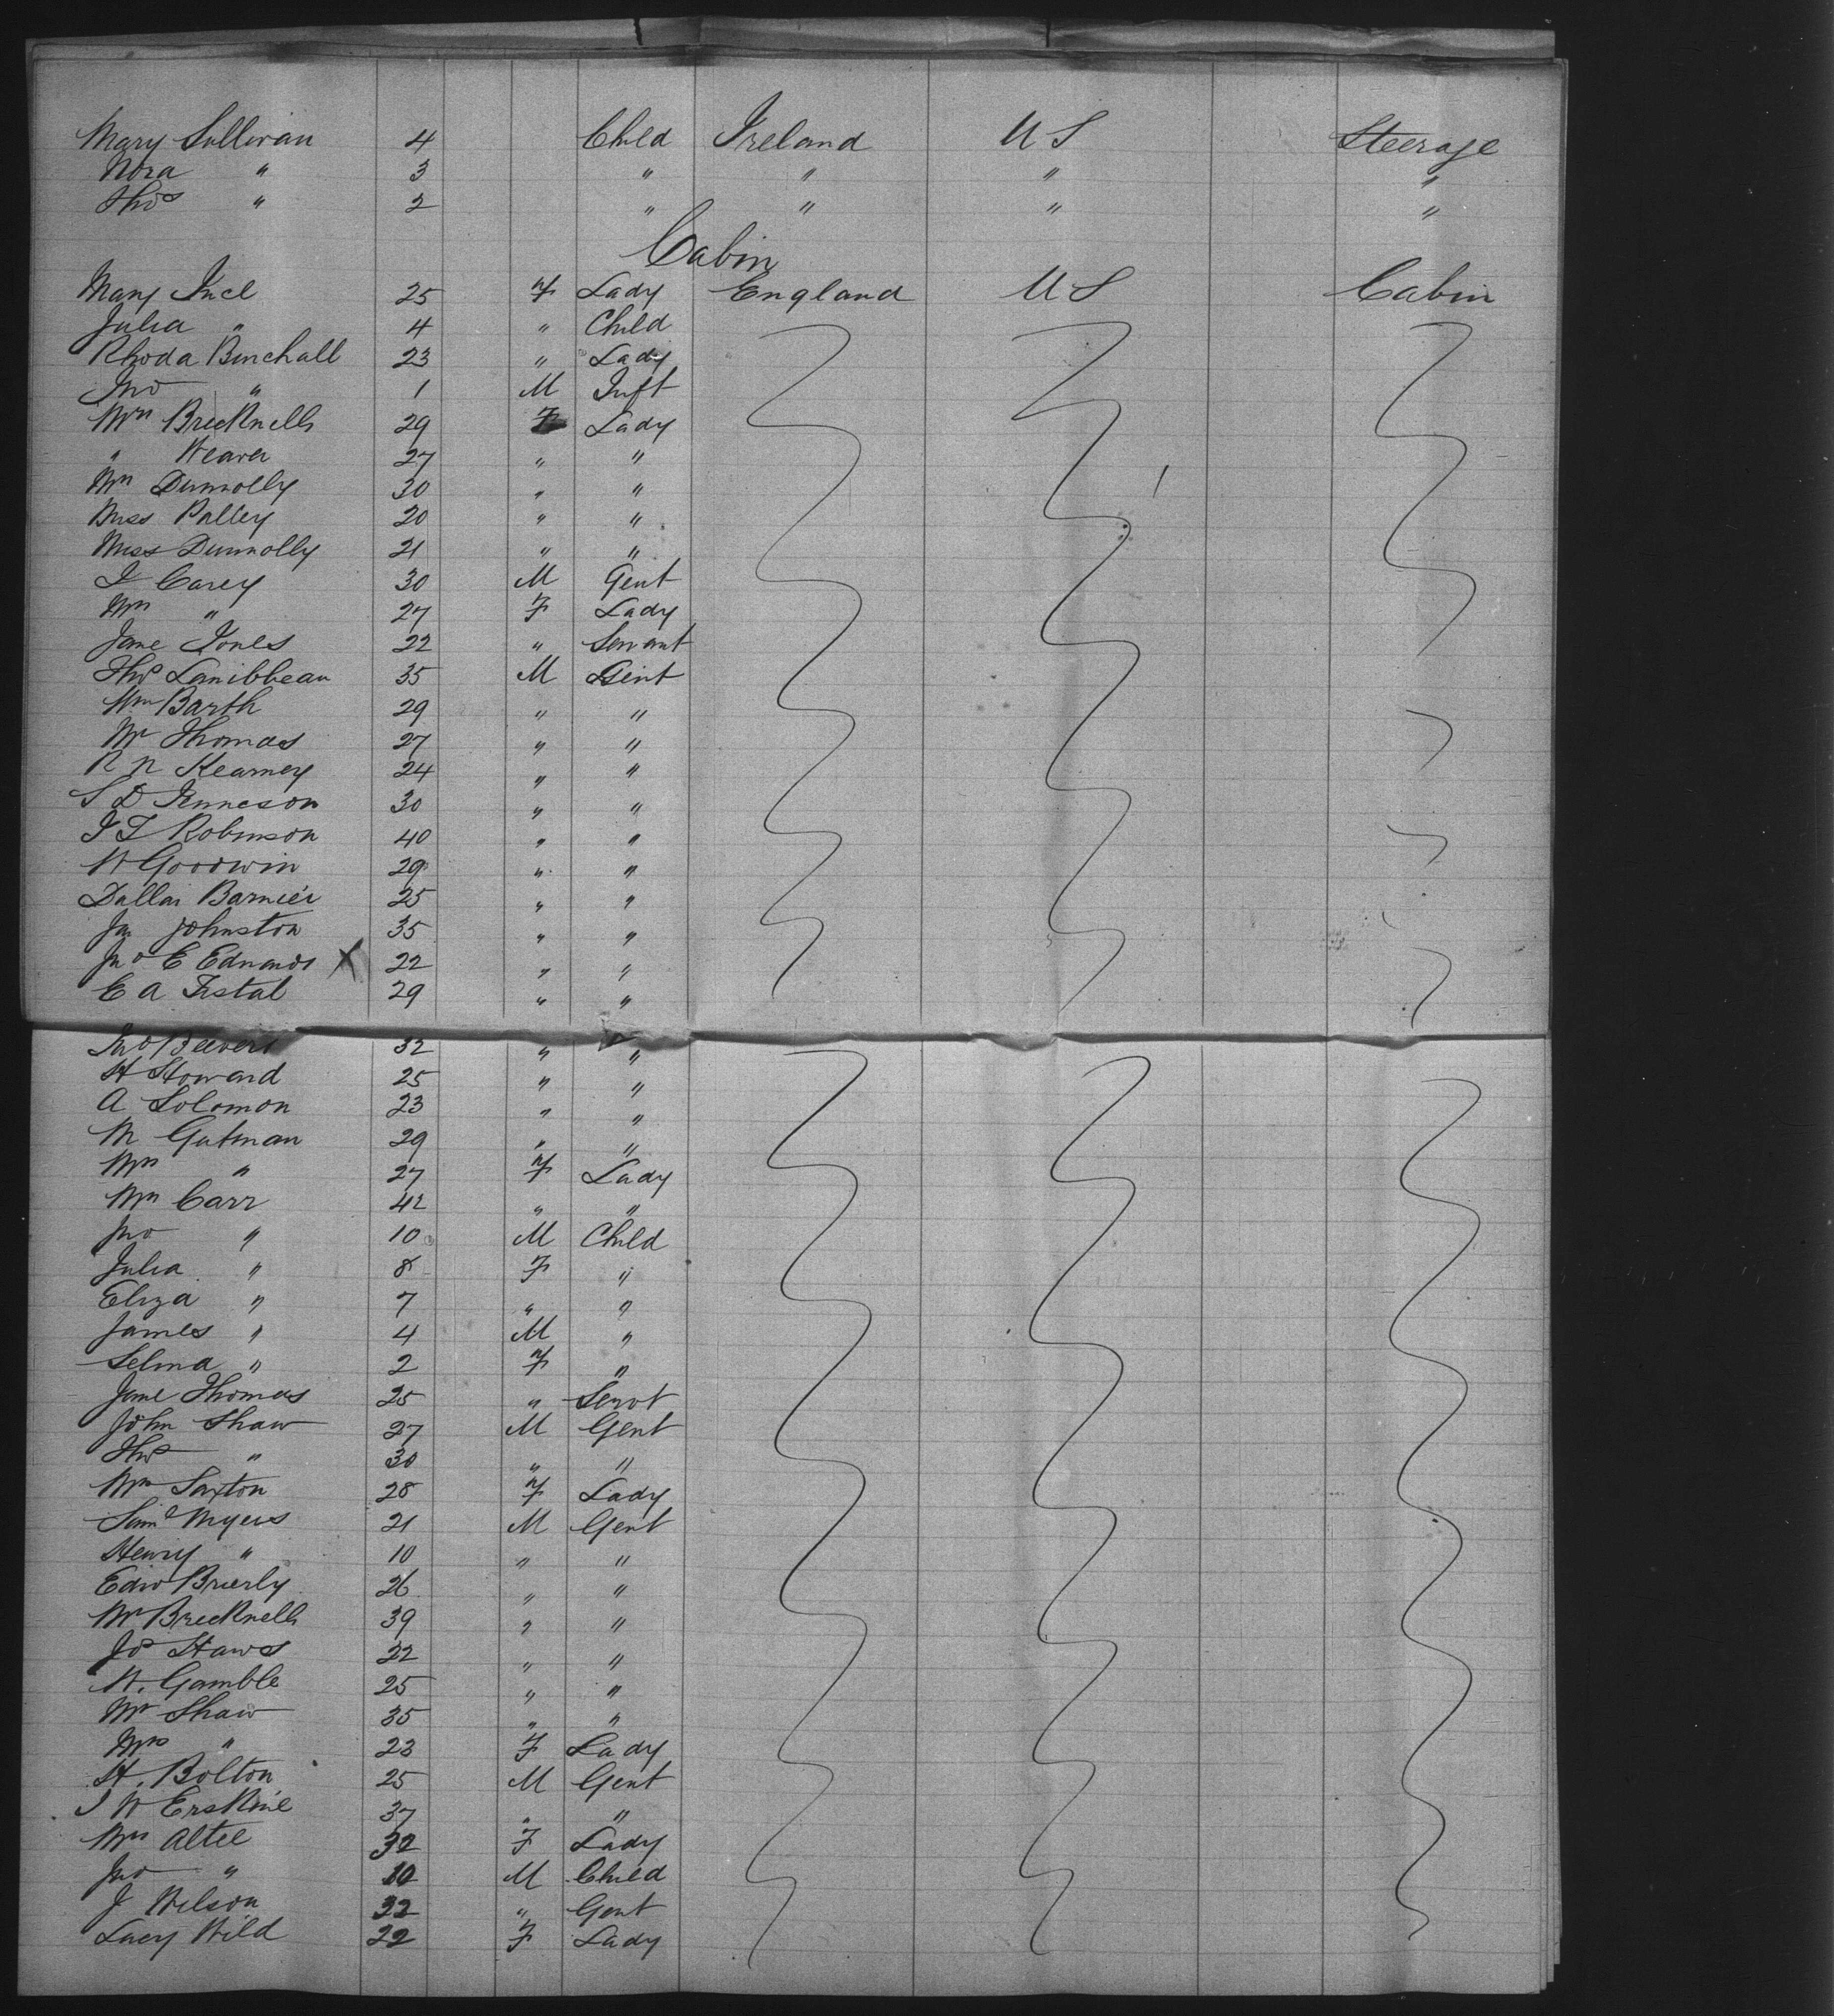 Mary Sullivan 4 Child Ireland US Steerage
Nora " 3 " " " "
Thos " 2 " " " "
Cabin
Mary 25 F Lady England US Cabin
Julia " 4 " Child
Rhoda Binchall 23 " Lady
Jno " 1 M Inft
Mrs Brecknells 29 F Lady
" Weaver 27 " "
Mrs Dunnolly 30 " "
Miss Palley 20 " "
Miss Dunnolly 21 " "
J Carey 30 M Gent
Mrs " 27 F Lady
Jane Jones 22 " Servant
Thos 35 M Gent
Wm Barth 29 " "
Mr Thomas 27 " "
R N Kearney 24 " "
S D Jenneson 30 " "
J T Robinson 40 " "
W Goodwin 29 " "
Dallas 25 " "
Jas Johnston 35 " "
Jno E Edwards X 22 " "
E A 29 " "
Jno Beevers 32 " "
H Howard 25 " "
A Solomon 23 " "
M Gutman 29 " "
Mrs " 27 F Lady
Mrs Carr 42 " "
Jno " 10 M Child
Julia " 8 F "
Eliza " 7 " "
James " 4 M "
Selma " 2 F "
Jane Thomas 25 " Servt
John Shaw 27 M Gent
Thos " 30 " "
Mrs Saxton 28 F Lady
Saml Myers 21 M Gent
Henry " 10 " "
Edw Brierly 26 " "
Mr Brecknells 39 " "
Jos Haws 22 " "
W. Gamble 25 " "
Mr Shaw 35 " "
Mrs " 23 F Lady
H. Bolton 25 M Gent
J W Erskine 37 " "
Mrs Altee 32 F Lady
Jno " 10 M Child
J Wilson 32 " Gent
Lucy Wild 22 F Lady